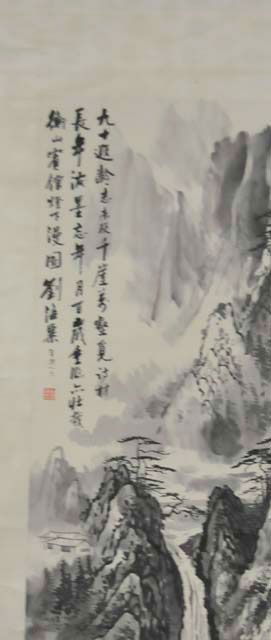 九十遐齡志未殘千崖萬壑覓詩材
長年潑墨忘年月百歲重臨亦壯哉
衡山賓館燈下漫圖劉海粟